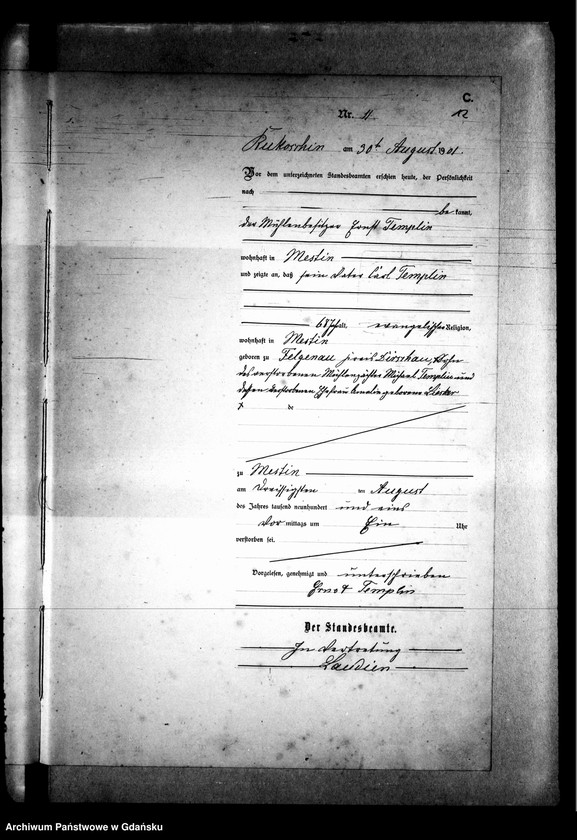 C.
Nr. 11.
12
Kukoschin am 30t August 1901.
Vor dem unterzeichneten Standesbeamten erschien heute, der Persönlichkeit
nach
be kannt,
der Mühlenbesitzer Ernst Templin
wohnhaft in Mestin
und zeigte an, daß sein Vater Carl Templin
68 J alt, evangelischer Religion,
wohnhaft in Mestin
geboren zu Felgenau Kreis Dirschau, Sohn
des verstorbenen Mühlenpächter Michael Templin und
dessen verstorbenen Ehefrau Amalie geborene
de
zu Mestin
am Dreissigsten ten August
des Jahres tausend neunhundert und eins
Vor mittags um Ein Uhr
verstorben sei.
Vorgelesen, genehmigt und unterschrieben
Ernst Templin
Der Standesbeamte.
In Vertretung
Laudien
Archiwum Państwowe w Gdańsku